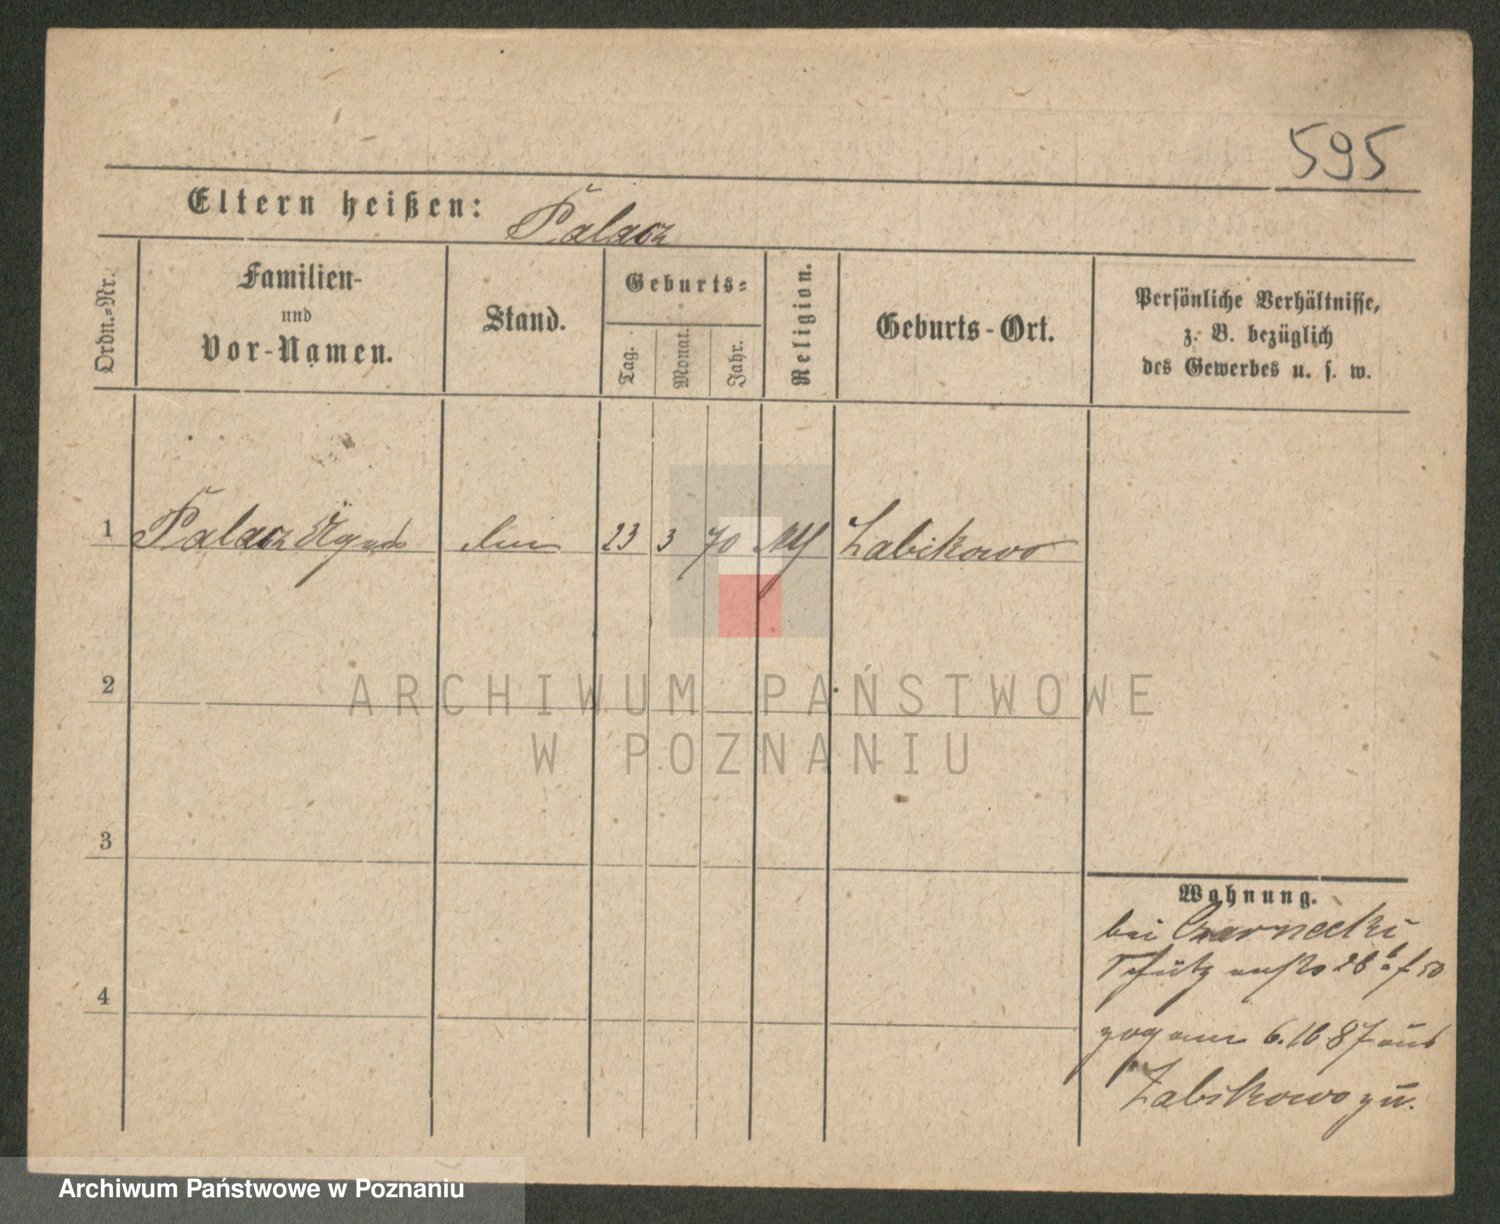 595
Eltern heißen: Palacz
Ordn.-Nr.
Familien-
und
Vor-Namen.
Stand.
Geburts-
Tag.
Monat.
Jahr.
Religion.
Geburts-Ort.
Persönliche Verhältnisse,
z. B. bezüglich
des Gewerbes u. s. w.
1 Palacz 23 3 70 Zabikowo
2
3
4
ARCHIWUM PAŃSTWOWE
W POZNANIU
Wohnung.
bei Czarnecki
zog am 6. 10 87 aus
Zabikowo zu.
Archiwum Państwowe w Poznaniu